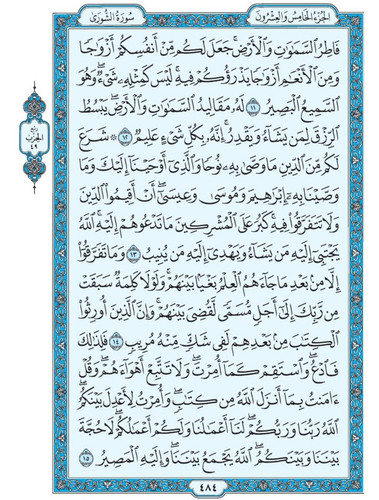 الجزء الخامس والعشرون
سورة الشورى
فَاطِرُ السَّمَٰوَٰتِ وَالْأَرْضِ ۚ جَعَلَ لَكُم مِّنْ أَنفُسِكُمْ أَزْوَٰجًا
وَمِنَ الْأَنْعَٰمِ أَزْوَٰجًا ۖ يَذْرَؤُكُمْ فِيهِ ۚ لَيْسَ كَمِثْلِهِۦ شَىْءٌ ۖ وَهُوَ
السَّمِيعُ الْبَصِيرُ ١١ لَهُۥ مَقَالِيدُ السَّمَٰوَٰتِ وَالْأَرْضِ ۖ يَبْسُطُ
الرِّزْقَ لِمَن يَشَآءُ وَيَقْدِرُ ۚ إِنَّهُۥ بِكُلِّ شَىْءٍ عَلِيمٌ ١٢ ۞ شَرَعَ
لَكُم مِّنَ الدِّينِ مَا وَصَّىٰ بِهِۦ نُوحًا وَالَّذِىٓ أَوْحَيْنَآ إِلَيْكَ وَمَا
وَصَّيْنَا بِهِۦٓ إِبْرَٰهِيمَ وَمُوسَىٰ وَعِيسَىٰٓ ۖ أَنْ أَقِيمُوا۟ الدِّينَ
وَلَا تَتَفَرَّقُوا۟ فِيهِ ۚ كَبُرَ عَلَى الْمُشْرِكِينَ مَا تَدْعُوهُمْ إِلَيْهِ ۚ اللَّهُ
يَجْتَبِىٓ إِلَيْهِ مَن يَشَآءُ وَيَهْدِىٓ إِلَيْهِ مَن يُنِيبُ ١٣ وَمَا تَفَرَّقُوٓا۟
إِلَّا مِنۢ بَعْدِ مَا جَآءَهُمُ الْعِلْمُ بَغْيًۢا بَيْنَهُمْ ۚ وَلَوْلَا كَلِمَةٌ سَبَقَتْ
مِن رَّبِّكَ إِلَىٰٓ أَجَلٍ مُّسَمًّى لَّقُضِىَ بَيْنَهُمْ ۚ وَإِنَّ الَّذِينَ أُورِثُوا۟
الْكِتَٰبَ مِنۢ بَعْدِهِمْ لَفِى شَكٍّ مِّنْهُ مُرِيبٍ ١٤ فَلِذَٰلِكَ
فَادْعُ ۖ وَاسْتَقِمْ كَمَآ أُمِرْتَ ۖ وَلَا تَتَّبِعْ أَهْوَآءَهُمْ ۖ وَقُلْ
ءَامَنتُ بِمَآ أَنزَلَ اللَّهُ مِن كِتَٰبٍ ۖ وَأُمِرْتُ لِأَعْدِلَ بَيْنَكُمُ ۖ
اللَّهُ رَبُّنَا وَرَبُّكُمْ ۖ لَنَآ أَعْمَٰلُنَا وَلَكُمْ أَعْمَٰلُكُمْ ۖ لَا حُجَّةَ
بَيْنَنَا وَبَيْنَكُمُ ۖ اللَّهُ يَجْمَعُ بَيْنَنَا ۖ وَإِلَيْهِ الْمَصِيرُ ١٥
ربع
الحزب
٤٩
٤٨٤